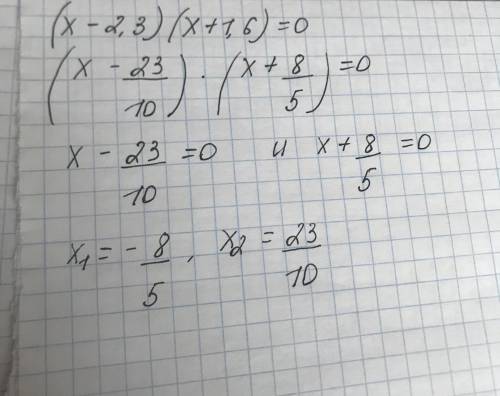 (x - 2,3) (x + 1,6) = 0
(x - 23/10) · (x + 8/5) = 0
x - 23/10 = 0 и x + 8/5 = 0
x₁ = - 8/5 , x₂ = 23/10